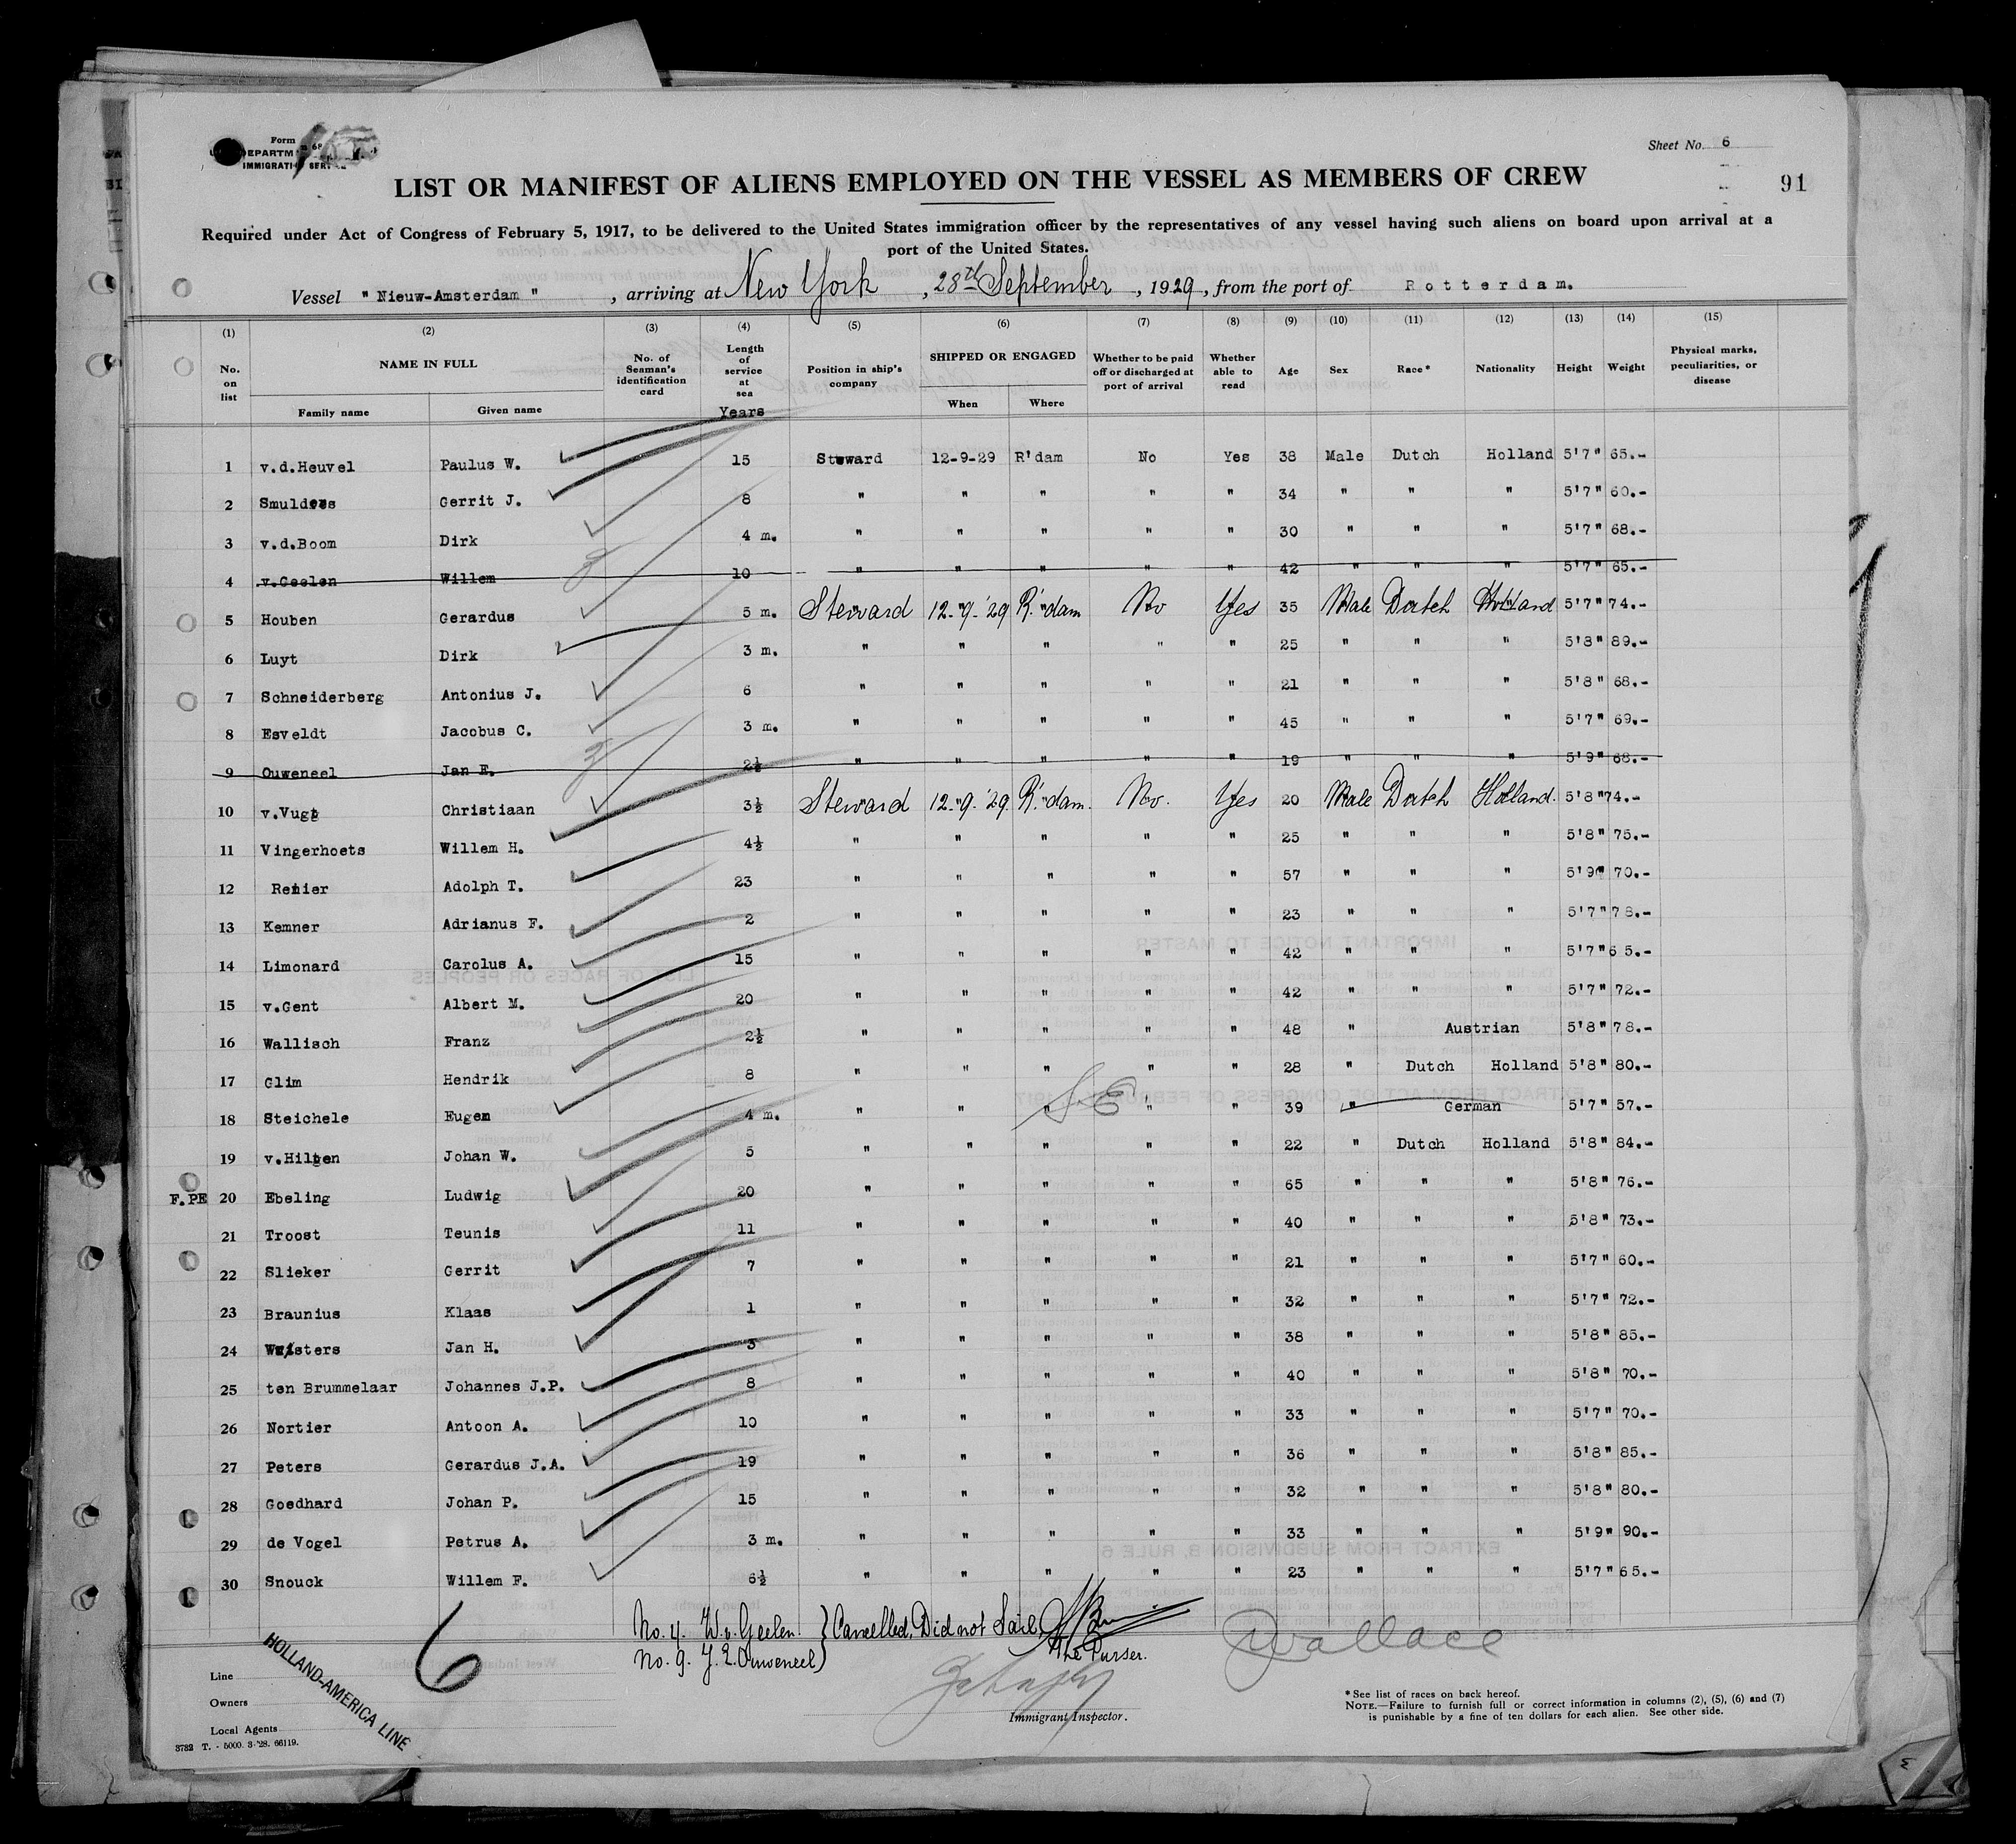 Form 68
DEPARTM
IMMIGRATI SERV
Sheet No. 6
LIST OR MANIFEST OF ALIENS EMPLOYED ON THE VESSEL AS MEMBERS OF CREW
91
Required under Act of Congress of February 5, 1917, to be delivered to the United States immigration officer by the representatives of any vessel having such aliens on board upon arrival at a
port of the United States.
Vessel " Nieuw-Amsterdam " , arriving at New York , 28th September , 1929 , from the port of Rotterdam.
(1) (2) (3) (4) (5) (6) (7) (8) (9) (10) (11) (12) (13) (14) (15)
No. on list NAME IN FULL Family name Given name No. of Seaman's identification card Length of service at sea Years Position in ship's company SHIPPED OR ENGAGED When Where Whether to be paid off or discharged at port of arrival Whether able to read Age Sex Race* Nationality Height Weight Physical marks, peculiarities, or disease
1 v.d.Heuvel Paulus W. 15 Steward 12-9-29 R'dam No Yes 38 Male Dutch Holland 5'7" 65.-
2 Smulders Gerrit J. 8 " " " " " 34 " " " 5'7" 60.-
3 v.d.Boom Dirk 4 m. " " " " " 30 " " " 5'7" 68.-
4 v.Geelen Willem 10 " " " " " 42 " " " 5'7" 65.-
5 Houben Gerardus 5 m. Steward 12-9-'29 R'dam No Yes 35 Male Dutch Holland 5'7" 74.-
6 Luyt Dirk 3 m. " " " " " 25 " " " 5'8" 89.-
7 Schneiderberg Antonius J. 6 " " " " " 21 " " " 5'8" 68.-
8 Esveldt Jacobus C. 3 m. " " " " " 45 " " " 5'7" 69.-
9 Ouweneel Jan E. 2½ " " " " " 19 " " " 5'9" 68.-
10 v.Vugt Christiaan 3½ Steward 12-9-'29 R'dam. No. Yes 20 Male Dutch Holland. 5'8" 74.-
11 Vingerhoets Willem H. 4½ " " " " " 25 " " " 5'8" 75.-
12 Renier Adolph T. 23 " " " " " 57 " " " 5'9" 70.-
13 Kemner Adrianus F. 2 " " " " " 23 " " " 5'7" 78.-
14 Limonard Carolus A. 15 " " " " " 42 " " " 5'7" 65.-
15 v.Gent Albert M. 20 " " " " " 42 " " " 5'7" 72.-
16 Wallisch Franz 2½ " " " " " 48 " Austrian 5'8" 78.-
17 Glim Hendrik 8 " " " " " 28 " Dutch Holland 5'8" 80.-
18 Steichele Eugen 4 m. " " " " " 39 " German 5'7" 57.-
19 v.Hilten Johan W. 5 " " " " " 22 " Dutch Holland 5'8" 84.-
F.PE 20 Ebeling Ludwig 20 " " " " " 65 " " " 5'8" 76.-
21 Troost Teunis 11 " " " " " 40 " " " 5'8" 73.-
22 Slieker Gerrit 7 " " " " " 21 " " " 5'7" 60.-
23 Braunius Klaas 1 " " " " " 32 " " " 5'7" 72.-
24 Jan H. 3 " " " " " 38 " " " 5'8" 85.-
25 ten Brummelaar Johannes J.P. 8 " " " " " 40 " " " 5'8" 70.-
26 Nortier Antoon A. 10 " " " " " 33 " " " 5'7" 70.-
27 Peters Gerardus J.A. 19 " " " " " 36 " " " 5'8" 85.-
28 Goedhard Johan P. 15 " " " " " 32 " " " 5'8" 80.-
29 de Vogel Petrus A. 3 m. " " " " " 33 " " " 5'9" 90.-
30 Snouck Willem F. 6½ " " " " " 23 " " " 5'7" 65.-
No. 4. W.v. Geelen } Cancelled, Did not Sail,
No. 9. J.E. Ouweneel }
The Purser.
Wallace
6
Line
Owners
Local Agents
HOLLAND-AMERICA LINE
Immigrant Inspector.
* See list of races on back hereof.
NOTE.—Failure to furnish full or correct information in columns (2), (5), (6) and (7)
is punishable by a fine of ten dollars for each alien. See other side.
3782 T. - 5000. 3-'28. 66119.